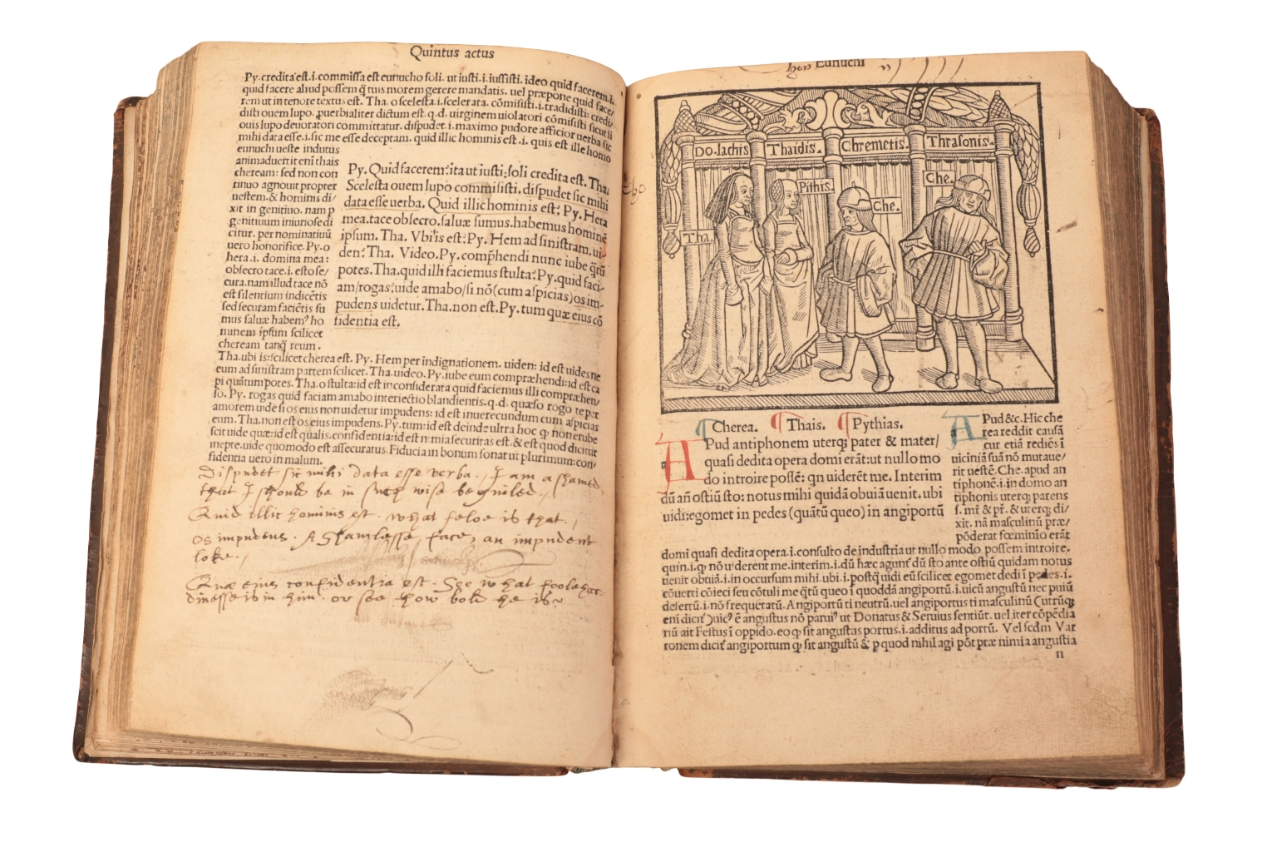 Quintus actus
Py. credita est. i. commissa est eunucho soli. ut iusti. i. iussisti. ideo quid facerem. i.
quid facere aliud possem q̃ tuis morem gerere mandatis. uel præpone quid face/
rem ut in tenore textus est. Tha. o scelesta. i. scelerata. cõmisisti. i. tradidisti: credi/
disti ouem lupo. ꝓuerbialiter dictum est. q. d. uirginem uiolatori cõmisisti sicut si
ouis lupo deuoratori committatur. dispudet. i. maximo pudore afficior uerba sic
mihi data esse. i. sic me esse deceptam. quid illic hominis est. i. quis est ille homo
eunuchi ueste indutus
animaduertit eni thais
cheream: sed non con
tinuo agnouit propter
uestem. & hominis di/
xit in genitiuo. nam p
genituum iniuriose di
citur. per nominatiuũ
uero honorifice. Py. o
hera. i. domina mea:
obsecro tace. i. esto se/
cura. nam illud tace nõ
est silentium indicẽtis
sed securam faciẽtis su
mus saluæ habem⁹ ho
minem ipsum scilicet
cheream tanq̃ reum.
Py. Quid facerem: ita ut iusti: soli credita est. Tha.
Scelesta ouem lupo commisisti. dispudet sic mihi
data esse uerba. Quid illic hominis est: Py. Hera
mea. tace obsecro. saluæ sumus. habemus hominẽ
ipsum. Tha. Vbi is est: Py. Hem ad sinistram. ui/
den: Tha. Video. Py. comp̃hendi nunc iube q̃tũ
potes. Tha. quid illi faciemus stulta: Py. quid faci-
am/rogas: uide amabo/si nõ (cum aspicias) os im-
pudens uidetur. Tha. non est. Py. tum quæ eius cõ
fidentia est.
Tha. ubi is: scilicet cherea est. Py. Hem per indignationem. uiden: id est uides ne
eum ad sinistram partem scilicet. Tha. uideo. Py. iube eum compræhendi: id est ca
pi quãtum potes. Tha. o stulta: id est inconsiderata quid faciemus illi compræhen/
so. Py. rogas quid faciam amabo interiectio blandientis. q. d. quæso rogo te per
amorem uide si os eius non uidetur impudens: id est inuerecundum cum aspicias
eum. Tha. non est os eius impudens. Py. tum: id est deinde: ultra hoc q non erube
scit uide quæ: id est qualis. confidentia: id est nimia securitas est. & est quod dicitur
inepte. uide quomodo est assecuratus. Fiducia in bonum sonat ut plurimum: con/
fidentia uero in malum.
Dispudet sic mihi data esse verba. I am a shamed
that I should be in such wise beguiled.
Quid illic hominis est. what feloe is that.
os impudens. A shamlesse face, an impudent
loke.
Quæ eius confidentia est. See what foolehar
dinesse is in him. or see how bold he is
Eunuchi
Do. lachis Thaidis. Chremetis. Thrasonis.
Pithis.
Che.
Che.
Tha.
Cherea. Thais. Pythias.
APud antiphonem uterq; pater & mater/
quasi dedita opera domi erãt: ut nullo mo
do introire possẽ: qn uiderẽt me. Interim
dũ añ ostiũ sto: notus mihi quidã obuiã uenit. ubi
uidi: egomet in pedes (quãtũ queo) in angiportũ
APud &c. Hic che
rea reddit causã
cur etiã rediẽs ĩ
uiciniã suã nõ mutaue/
rit uestẽ. Che. apud an
tiphonẽ. i. in domo an
tiphonis uterq; parens
s. mr̃ & pr̃. & uterq; di/
xit. nã masculinũ præ/
põderat fœminĩo erãt
domi quasi dedita opera. i. consulto de industria ut nullo modo possem introire.
quin. i. q nõ uiderent me. interim. i. dũ hæc agunt̃ dũ sto ante ostiũ quidam notus
uenit obuiã. i. in occursum mihi. ubi. i. postq̃ uidi eũ scilicet egomet dedi ĩ pedes. i.
cõuerti cõieci seu cõtuli me q̃tũ queo ĩ quoddã angiportũ. i. uicũ angustũ nec puiũ
desertũ. i. nõ frequẽtatũ. Angiportũ ti neutrũ. uel angiportus ti masculinũ (utrũq;
eni dicit̃) uic⁹ ẽ angustus nõ parui⁹ ut Donatus & Seruius sentiũt. uel iter cõpẽdia
riũ ait Festus ĩ oppido. eo q sit angustus portus. i. additus ad portũ. Vel scdm Var
ronem dicit̃ angiportum q sit angustũ & p quod nihil agi põt præ nimia angustia
n